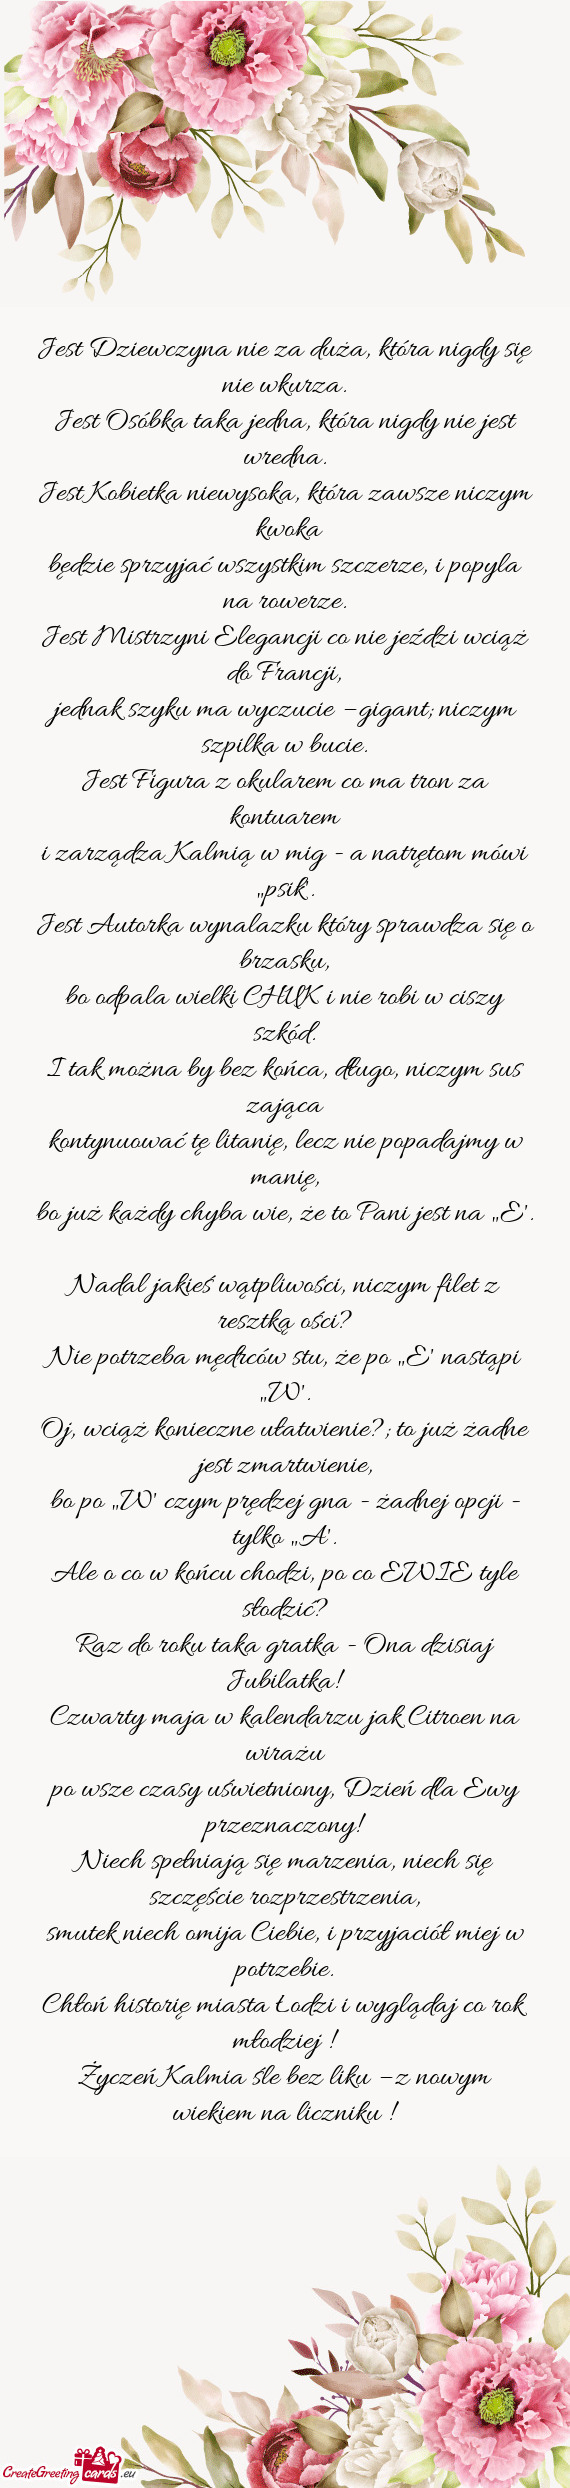 Jest Dziewczyna nie za duża, która nigdy się
nie wkurza.
Jest Osóbka taka jedna, która nigdy nie jest
wredna.
Jest Kobietka niewysoka, która zawsze niczym
kwoka
będzie sprzyjać wszystkim szczerze, i popyla
na rowerze.
Jest Mistrzyni Elegancji co nie jeździ wciąż
do Francji,
jednak szyku ma wyczucie – gigant; niczym
szpilka w bucie.
Jest Figura z okularem co ma tron za
kontuarem
i zarządza Kalmią w mig - a natrętom mówi
„psik”.
Jest Autorka wynalazku który sprawdza się o
brzasku,
bo odpala wielki CHUK i nie robi w ciszy
szkód.
I tak można by bez końca, długo, niczym sus
zająca
kontynuować tę litanię, lecz nie popadajmy w
manię,
bo już każdy chyba wie, że to Pani jest na „E”.
Nadal jakieś wątpliwości, niczym filet z
resztką ości?
Nie potrzeba mędrców stu, że po „E” nastąpi
„W”.
Oj, wciąż konieczne ułatwienie?; to już żadne
jest zmartwienie,
bo po „W” czym prędzej gna - żadnej opcji -
tylko „A”.
Ale o co w końcu chodzi, po co EWIE tyle
słodzić?
Raz do roku taka gratka - Ona dzisiaj
Jubilatka!
Czwarty maja w kalendarzu jak Citroen na
wirażu
po wsze czasy uświetniony, Dzień dla Ewy
przeznaczony!
Niech spełniają się marzenia, niech się
szczęście rozprzestrzenia,
smutek niech omija Ciebie, i przyjaciół miej w
potrzebie.
Chłoń historię miasta Łodzi i wyglądaj co rok
młodziej !
Życzeń Kalmia śle bez liku – z nowym
wiekiem na liczniku !
CreateGreeting cards .eu